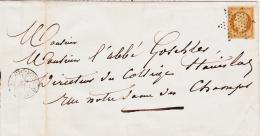 Monsieur
Monsieur l'abbé Goschler,
Directeur du Collège Stanislas
Rue Notre Dame des Champs